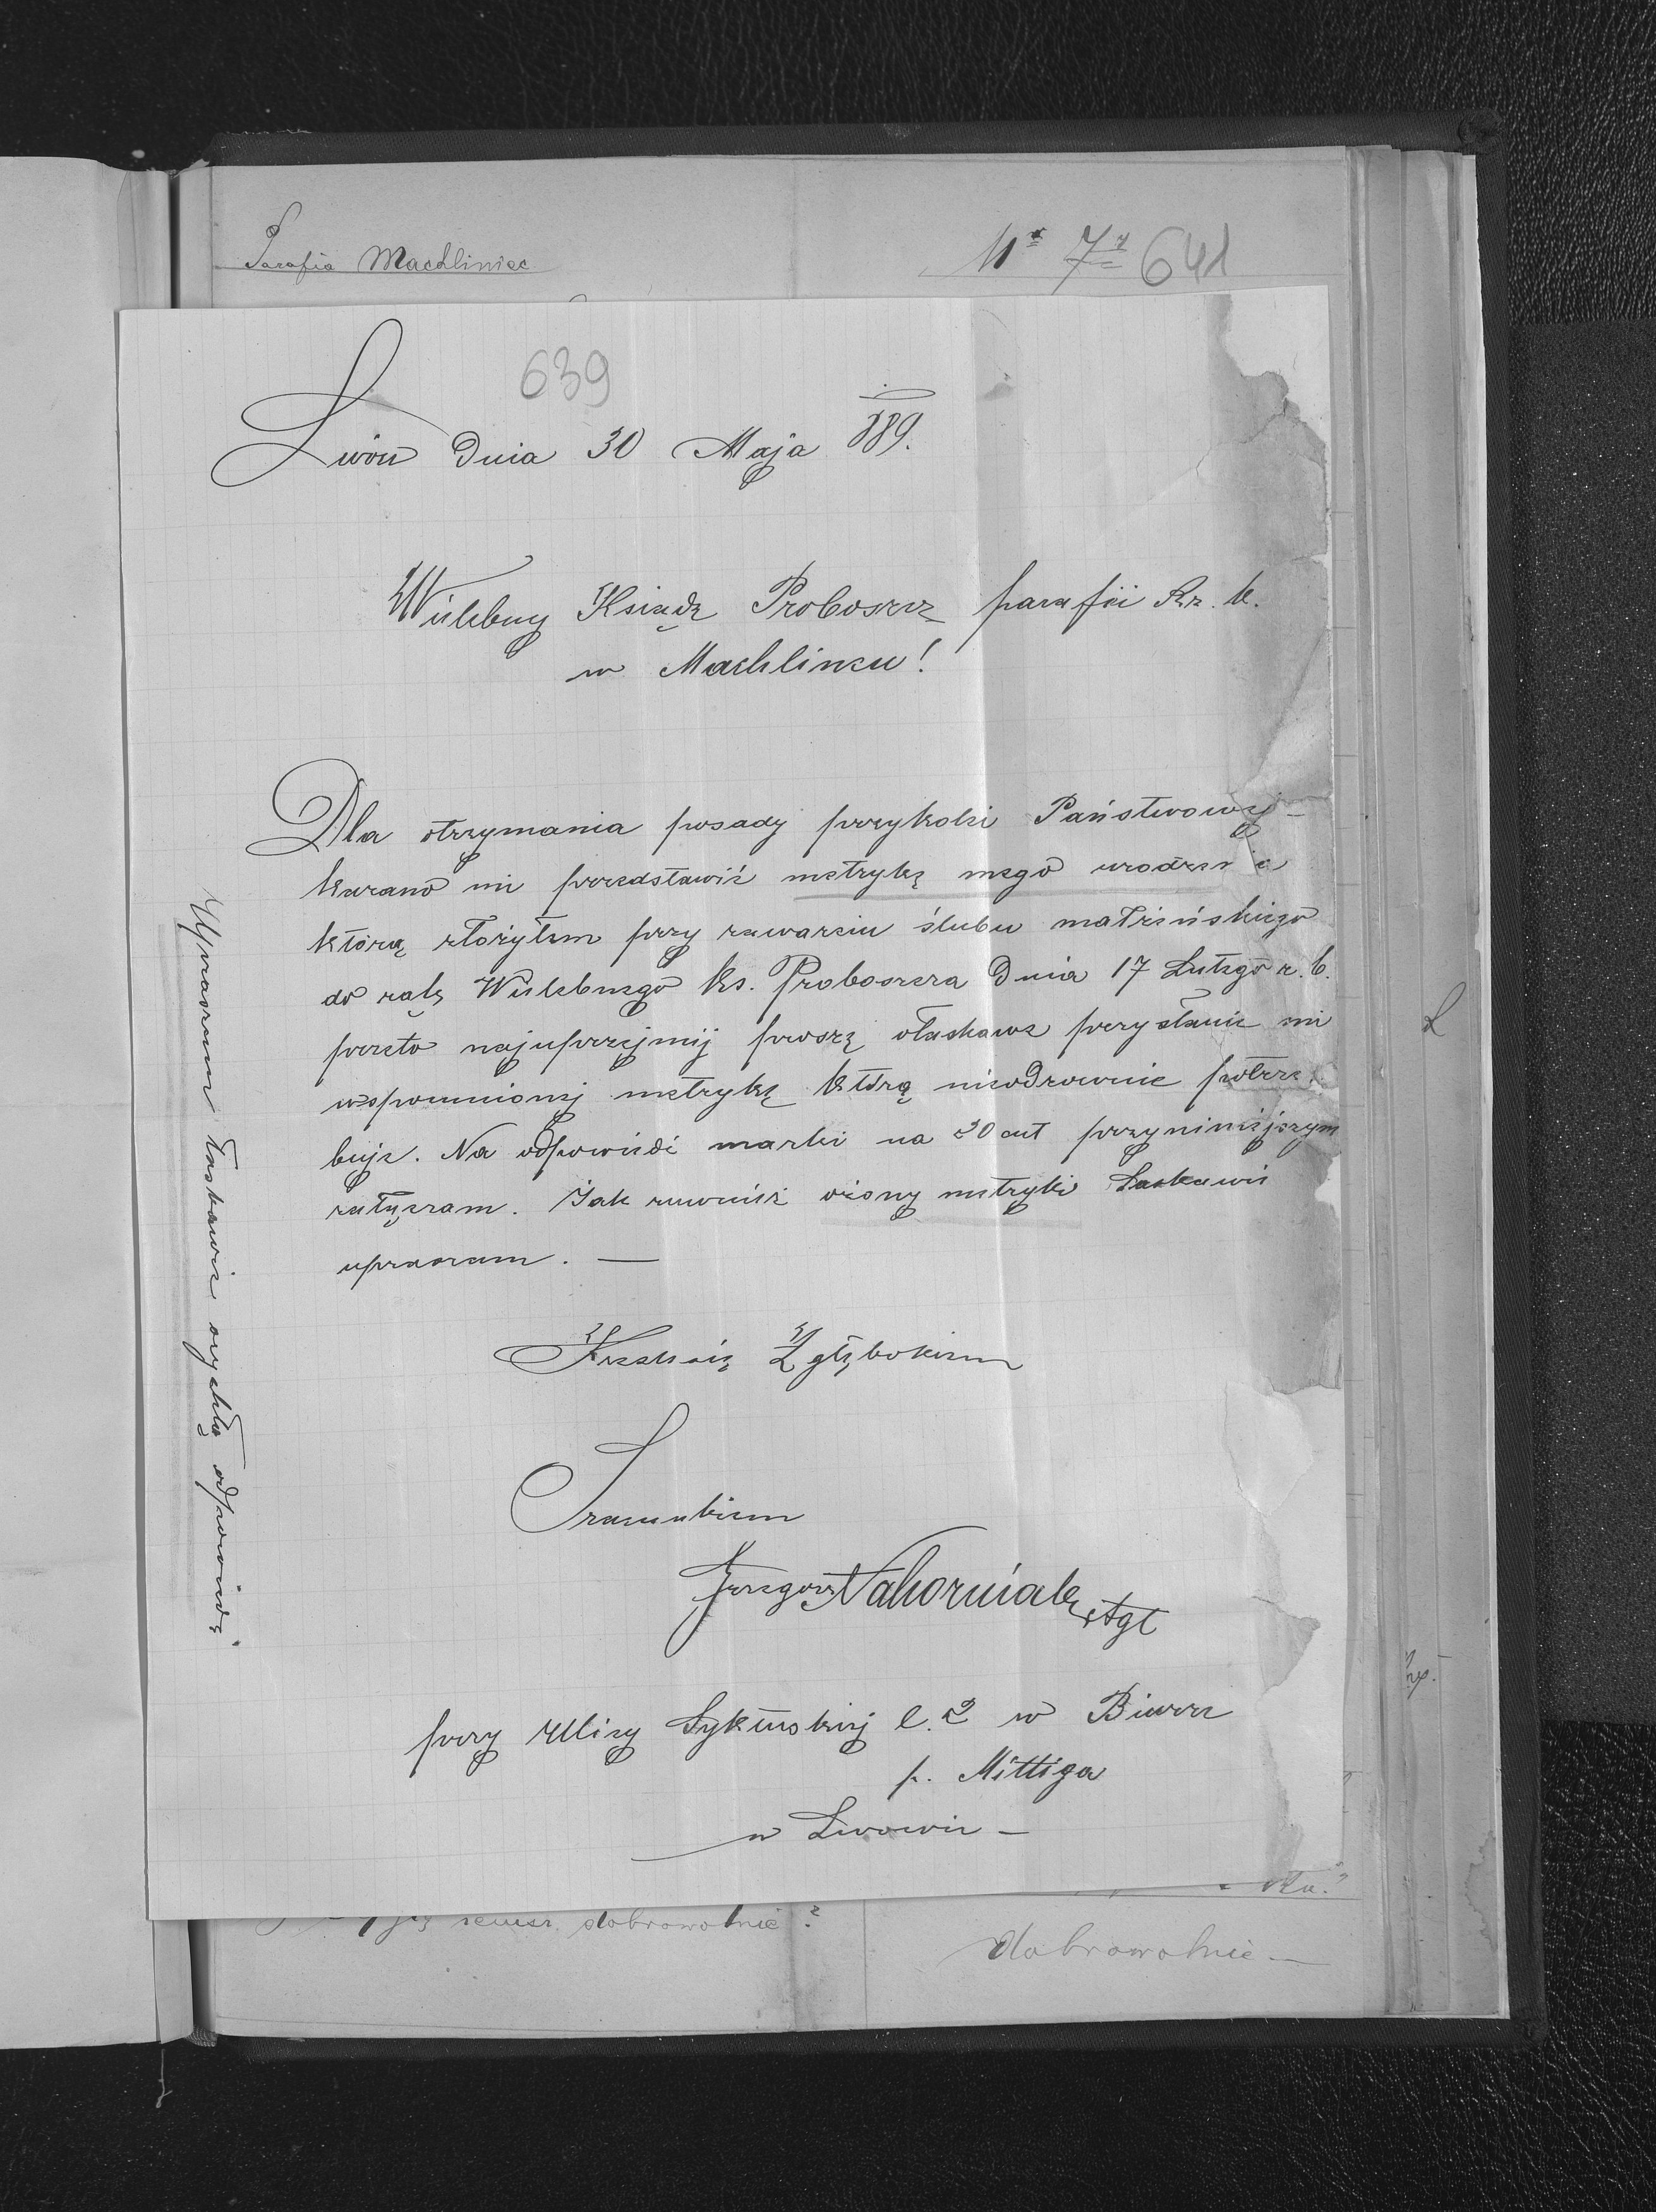 Parafia Machliniec
Nr 7 641
639
Lwów dnia 30 Maja 889.
Wielebny Ksiądz Proboszcz parafii Rz. k.
w Machlincu!
Dla otrzymania posady przy kolei Państwowej
kazano mi przedstawić metrykę mego urodzenia
którą złożyłem przy zawarciu ślubu małżeńskiego
do rąk Wielebnego Ks. Proboszcza dnia 17 Lutego r. b.
przeto najuprzejmij proszę ołaskawe przysłanie mi
wspomnionej metrykę którą nieodzownie potrze
buje. Na odpowiedź marki na 20 cnt przyniniejszym
załączam. Jak ruwnież ożony metryki Łaskawie
upraszam. —
Kreślsię Zgłębokiem
Szacunkiem
Grzegorz Nahorniak, Agt
przy Ulicy Sykstuskiej l. 2 w Biurze
p. Mittiga
w Lwowie —
Upraszam łaskawie orychłą odpowiedź
dobrowolnie ?
dobrowolnie —